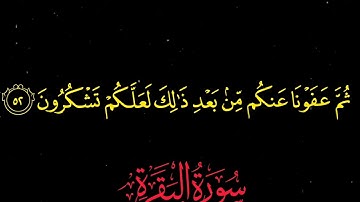 ثُمَّ عَفَوْنَا عَنكُم مِّنۢ بَعْدِ ذَٰلِكَ لَعَلَّكُمْ تَشْكُرُونَ ۝٥٢
سُورَةُ البَقَرَةِ